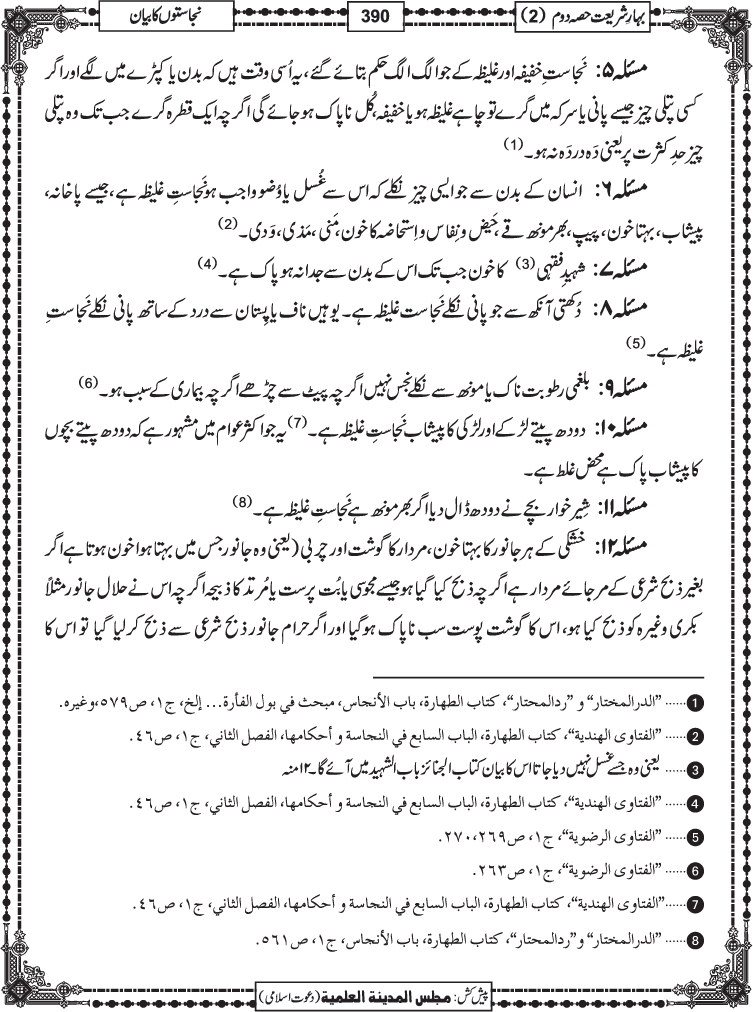 بہارِ شریعت حصہ دوم (2)
390
نجاستوں کا بیان
مسئلہ ۵: نَجاستِ خفیفہ اور غلیظہ کے جو الگ الگ حکم بتائے گئے، یہ اُسی وقت ہیں کہ بدن یا کپڑے میں لگے اور اگر
کسی پتلی چیز جیسے پانی یا سرکہ میں گرے تو چاہے غلیظہ ہو یا خفیفہ، کُل ناپاک ہو جائے گی اگرچہ ایک قطرہ گرے جب تک وہ پتلی
چیز حدِ کثرت پر یعنی دَہ دردَہ نہ ہو۔ (1)
مسئلہ ۶: انسان کے بدن سے جو ایسی چیز نکلے کہ اس سے غُسل یا وُضو واجب ہو نَجاستِ غلیظہ ہے، جیسے پاخانہ،
پیشاب، بہتا خون، پیپ، بھر مونھ قے، حَیض و نِفاس و اِستحاضہ کا خون، مَنی، مَذی، وَدی۔ (2)
مسئلہ ۷: شہیدِ فقہی (3) کا خون جب تک اس کے بدن سے جدا نہ ہو پاک ہے۔ (4)
مسئلہ ۸: دُکھتی آنکھ سے جو پانی نکلے نَجاستِ غلیظہ ہے۔ یوہیں ناف یا پِستان سے درد کے ساتھ پانی نکلے نَجاستِ
غلیظہ ہے۔ (5)
مسئلہ ۹: بلغمی رطوبت ناک یا مونھ سے نکلے نجس نہیں اگرچہ پیٹ سے چڑھے اگرچہ بیماری کے سبب ہو۔ (6)
مسئلہ ۱۰: دودھ پیتے لڑکے اور لڑکی کا پیشاب نَجاستِ غلیظہ ہے۔ (7) یہ جو اکثر عوام میں مشہور ہے کہ دودھ پیتے بچوں
کا پیشاب پاک ہے محض غلط ہے۔
مسئلہ ۱۱: شِیر خوار بچے نے دودھ ڈال دیا اگر بھر مونھ ہے نَجاستِ غلیظہ ہے۔ (8)
مسئلہ ۱۲: خشکی کے ہر جانور کا بہتا خون، مردار کا گوشت اور چربی (یعنی وہ جانور جس میں بہتا ہوا خون ہوتا ہے اگر
بغیر ذبح شرعی کے مر جائے مردار ہے اگرچہ ذبح کیا گیا ہو جیسے مجوسی یا بُت پرست یا مُرتد کا ذبیحہ اگرچہ اس نے حلال جانور مثلاً
بکری وغیرہ کو ذبح کیا ہو، اس کا گوشت پوست سب ناپاک ہو گیا اور اگر حرام جانور ذبح شرعی سے ذبح کر لیا گیا تو اس کا
1 ...... ”الدرالمختار“ و ”ردالمحتار“، كتاب الطهارة، باب الأنجاس، مبحث في بول الفأرة... إلخ، ج١، ص٥٧٩، وغيره.
2 ...... ”الفتاوى الهندية“، كتاب الطهارة، الباب السابع في النجاسة و أحكامها، الفصل الثاني، ج١، ص٤٦.
3 ...... یعنی وہ جسے غسل نہیں دیا جاتا اس کا بیان کتاب الجنائز باب الشہید میں آئے گا۔ ۱۲منہ
4 ...... ”الفتاوى الهندية“، كتاب الطهارة، الباب السابع في النجاسة و أحكامها، الفصل الثاني، ج١، ص٤٦.
5 ...... ”الفتاوى الرضوية“، ج١، ص٢٦٩،٢٧٠.
6 ...... ”الفتاوى الرضوية“، ج١، ص٢٦٣.
7 ...... ”الفتاوى الهندية“، كتاب الطهارة، الباب السابع في النجاسة و أحكامها، الفصل الثاني، ج١، ص٤٦.
8 ...... ”الدرالمختار“ و”ردالمحتار“، كتاب الطهارة، باب الأنجاس، ج١، ص٥٦١.
پیش کش: مجلس المدینۃ العلمیۃ (دعوت اسلامی)